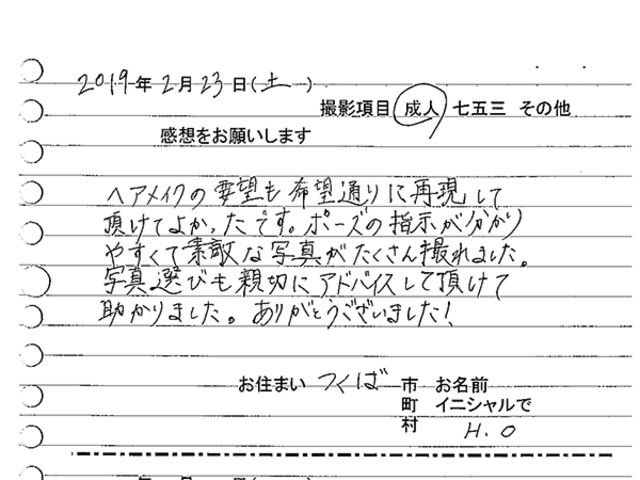 2019年2月23日(土)
撮影項目 成人 七五三 その他
感想をお願いします
ヘアメイクの要望も希望通りに再現して
頂けてよかったです。ポーズの指示が分かり
やすくて素敵な写真がたくさん撮れました。
写真選びも親切にアドバイスして頂けて
助かりました。ありがとうございました!
お住まい つくば 市 お名前
町 イニシャルで
村 H.O